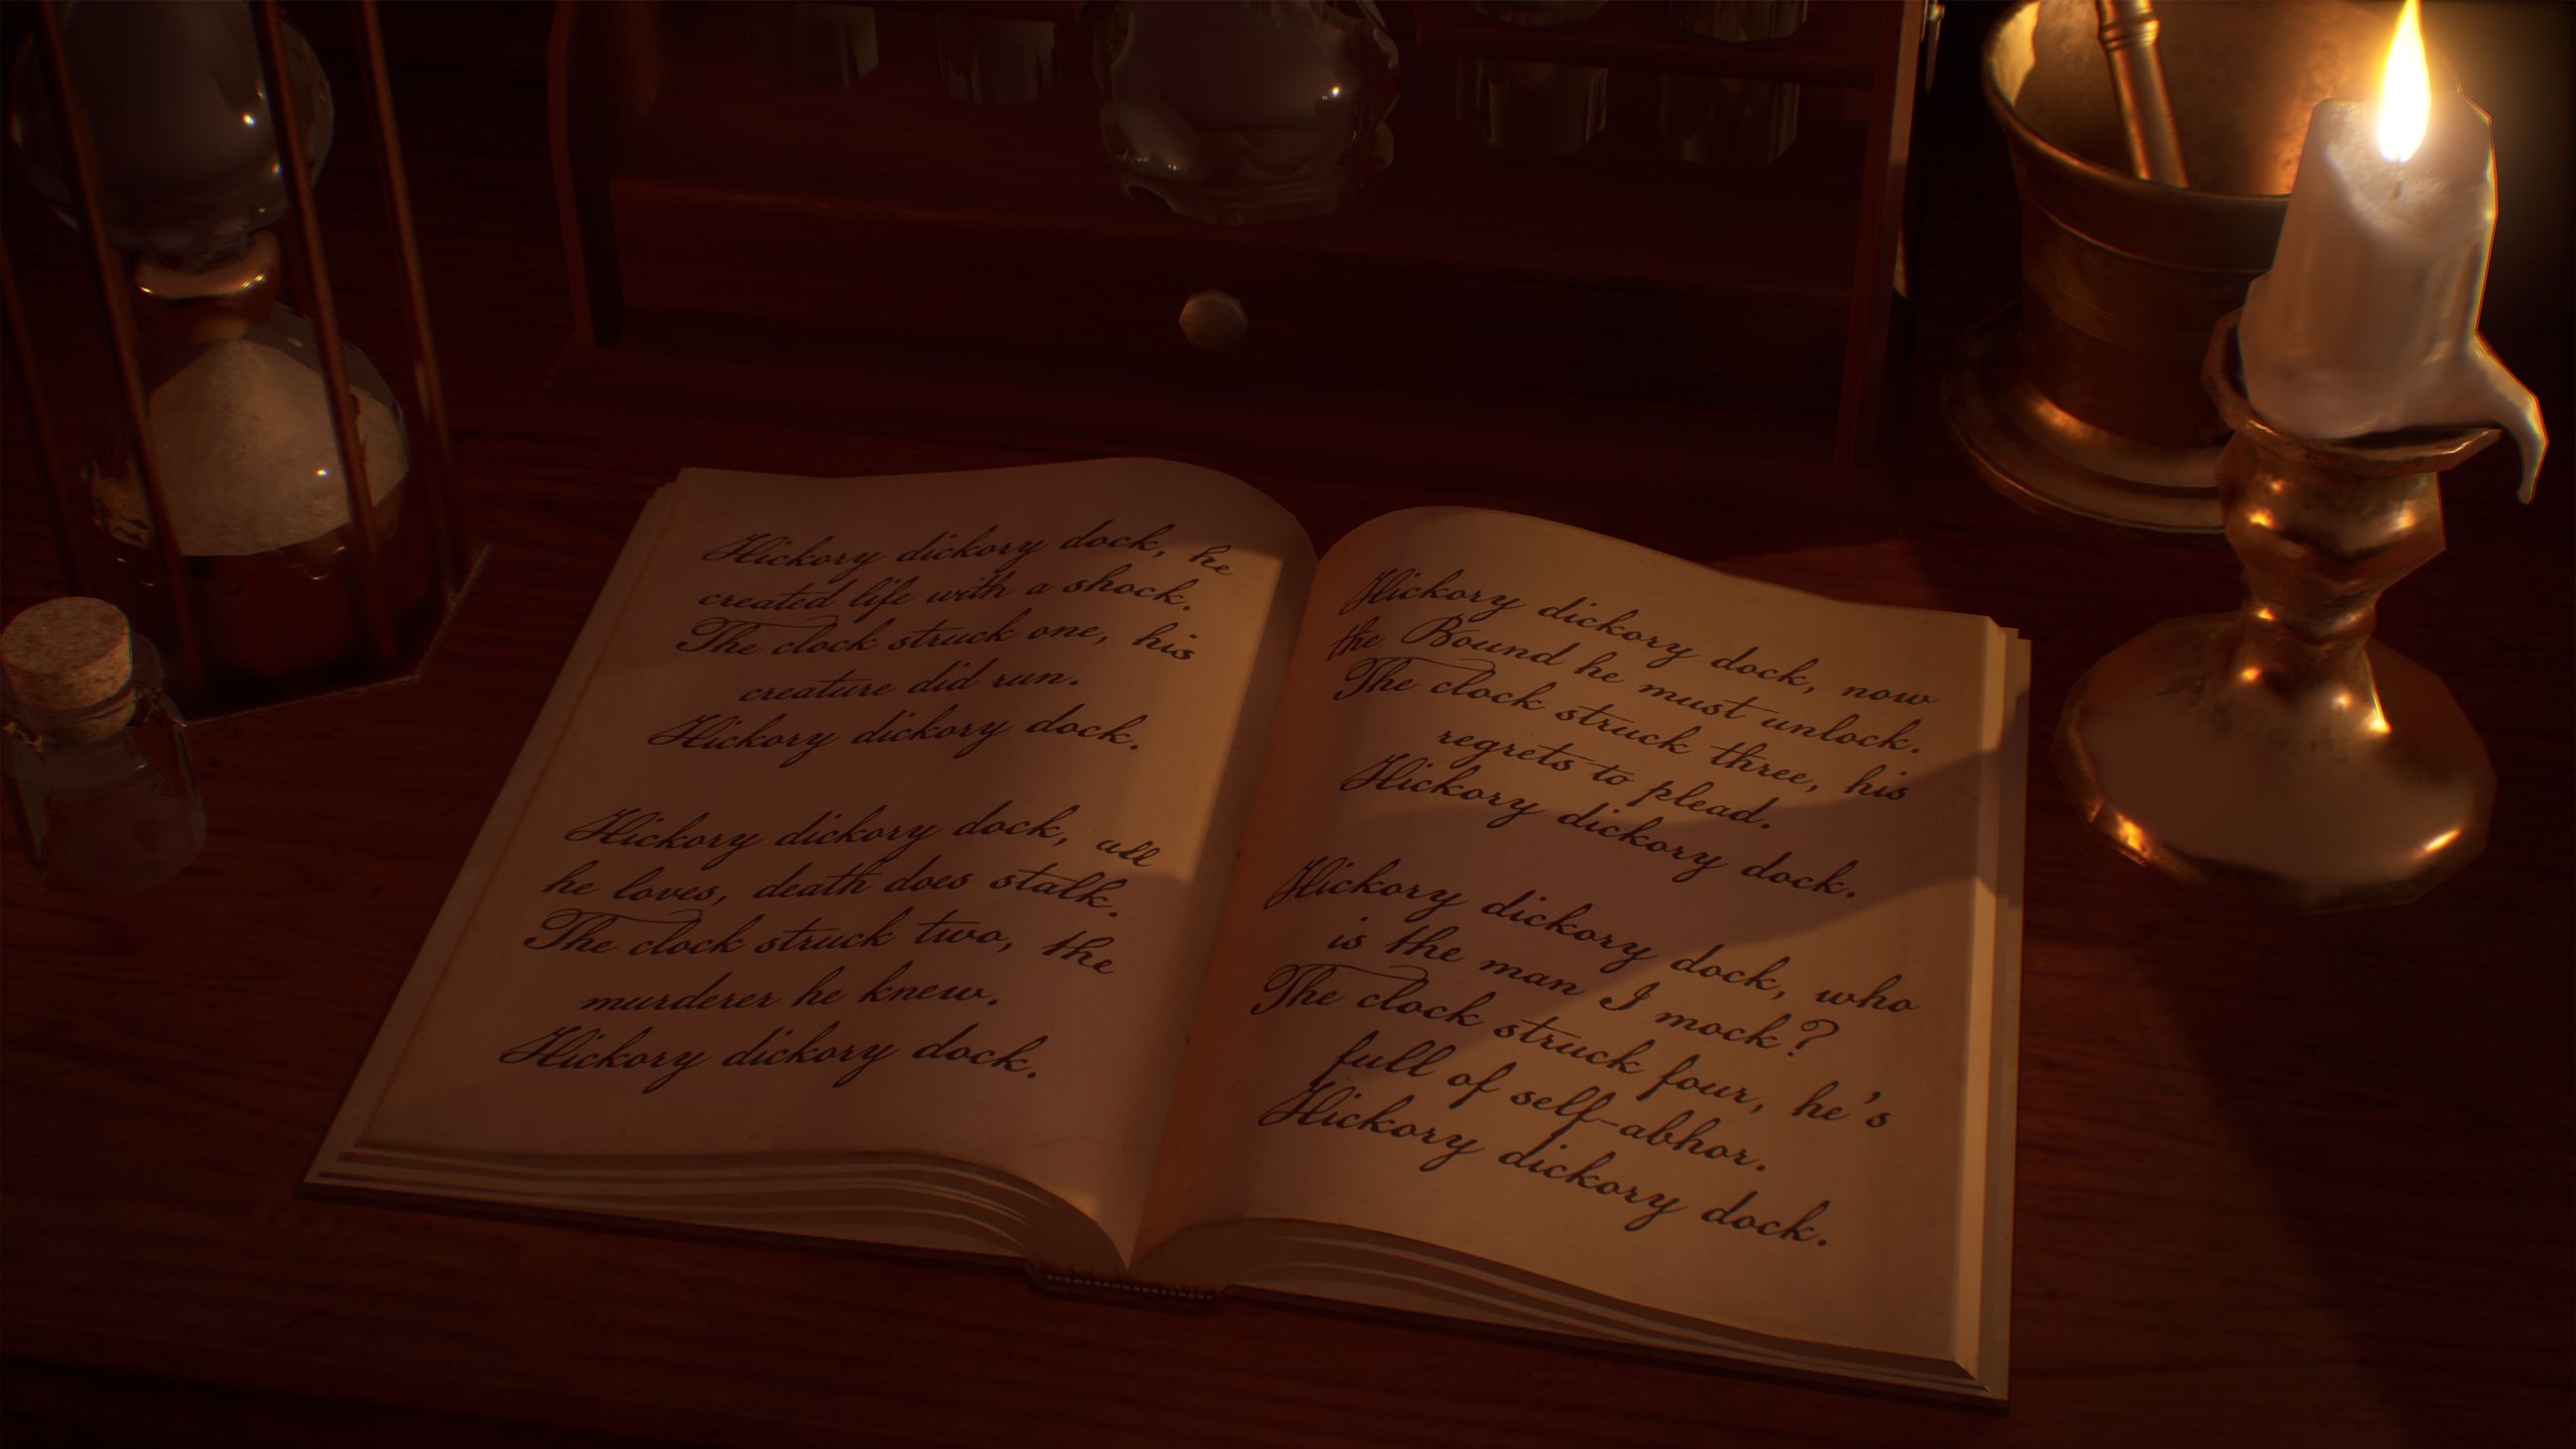 Hickory dickory dock, he
created life with a shock.
The clock struck one, his
creature did run.
Hickory dickory dock.
Hickory dickory dock, all
he loves, death does stalk.
The clock struck two, the
murderer he knew.
Hickory dickory dock.
Hickory dickory dock, now
the Bound he must unlock.
The clock struck three, his
regrets to plead.
Hickory dickory dock.
Hickory dickory dock, who
is the man I mock?
The clock struck four, he's
full of self-abhor.
Hickory dickory dock.